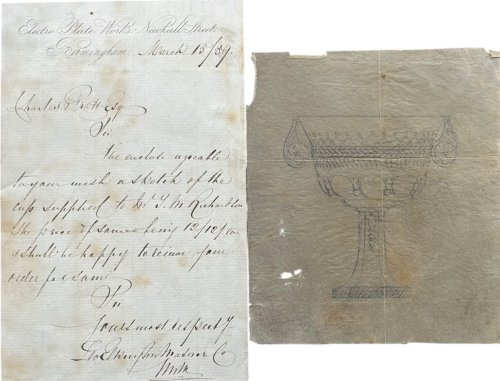 Electro Plate Works, Newhall Street
Birmingham, March 15/59
Charles Pratt Esqr
Sir
We enclose agreeable
to your wish a sketch of the
cup supplied to Mr T. M. Richardson
the price of same being 12/12/-
& shall be happy to receive your
order for same
Sir
Yours most respecty.
Elkington Mason & Co